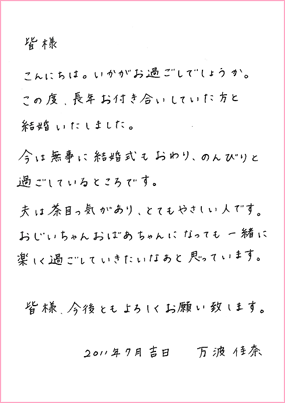 皆様
こんにちは。いかがお過ごしでしょうか。
この度、長年お付き合いしていた方と
結婚いたしました。
今は無事に結婚式もおわり、のんびりと
過ごしているところです。
夫は茶目っ気があり、とてもやさしい人です。
おじいちゃんおばあちゃんになっても一緒に
楽しく過ごしていきたいなあと思っています。
皆様、今後ともよろしくお願い致します。
2011年7月吉日　万波佳奈